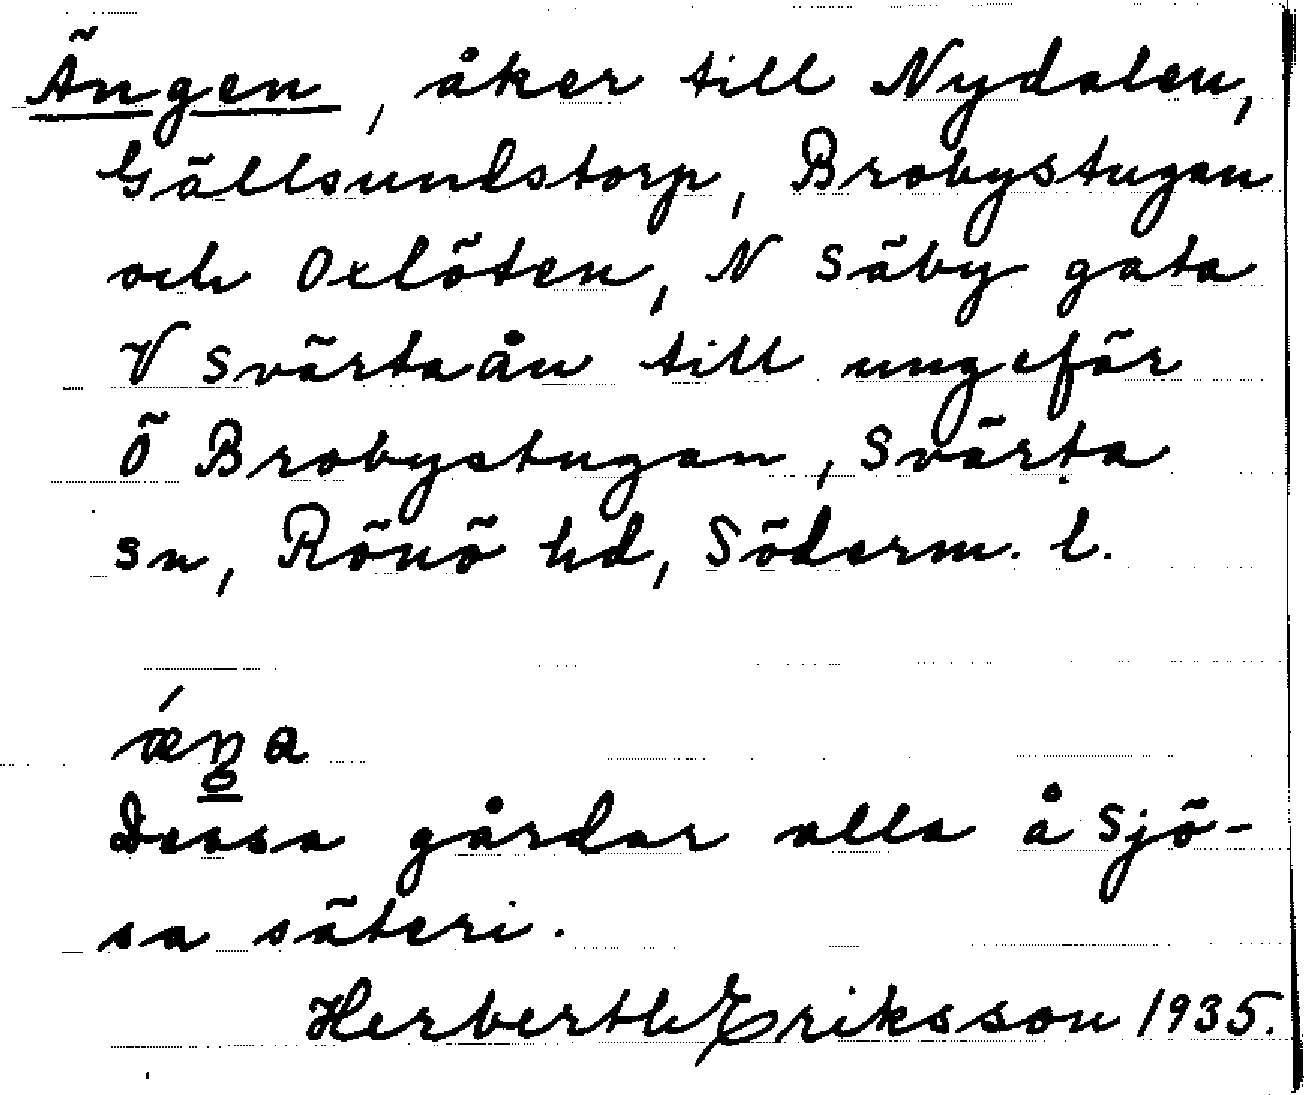 Ängen, åker till Nydalen,
Gällsundstorp, Brobystugan
och Oxlöten, N Säby gata
V Svärtaån till ungefär
Ö Brobystugan, Svärta
sn, Rönö hd, Söderm. l.
ǽŋa
Dessa gårdar alla å Sjö-
sa säteri.
Herberth Eriksson 1935.